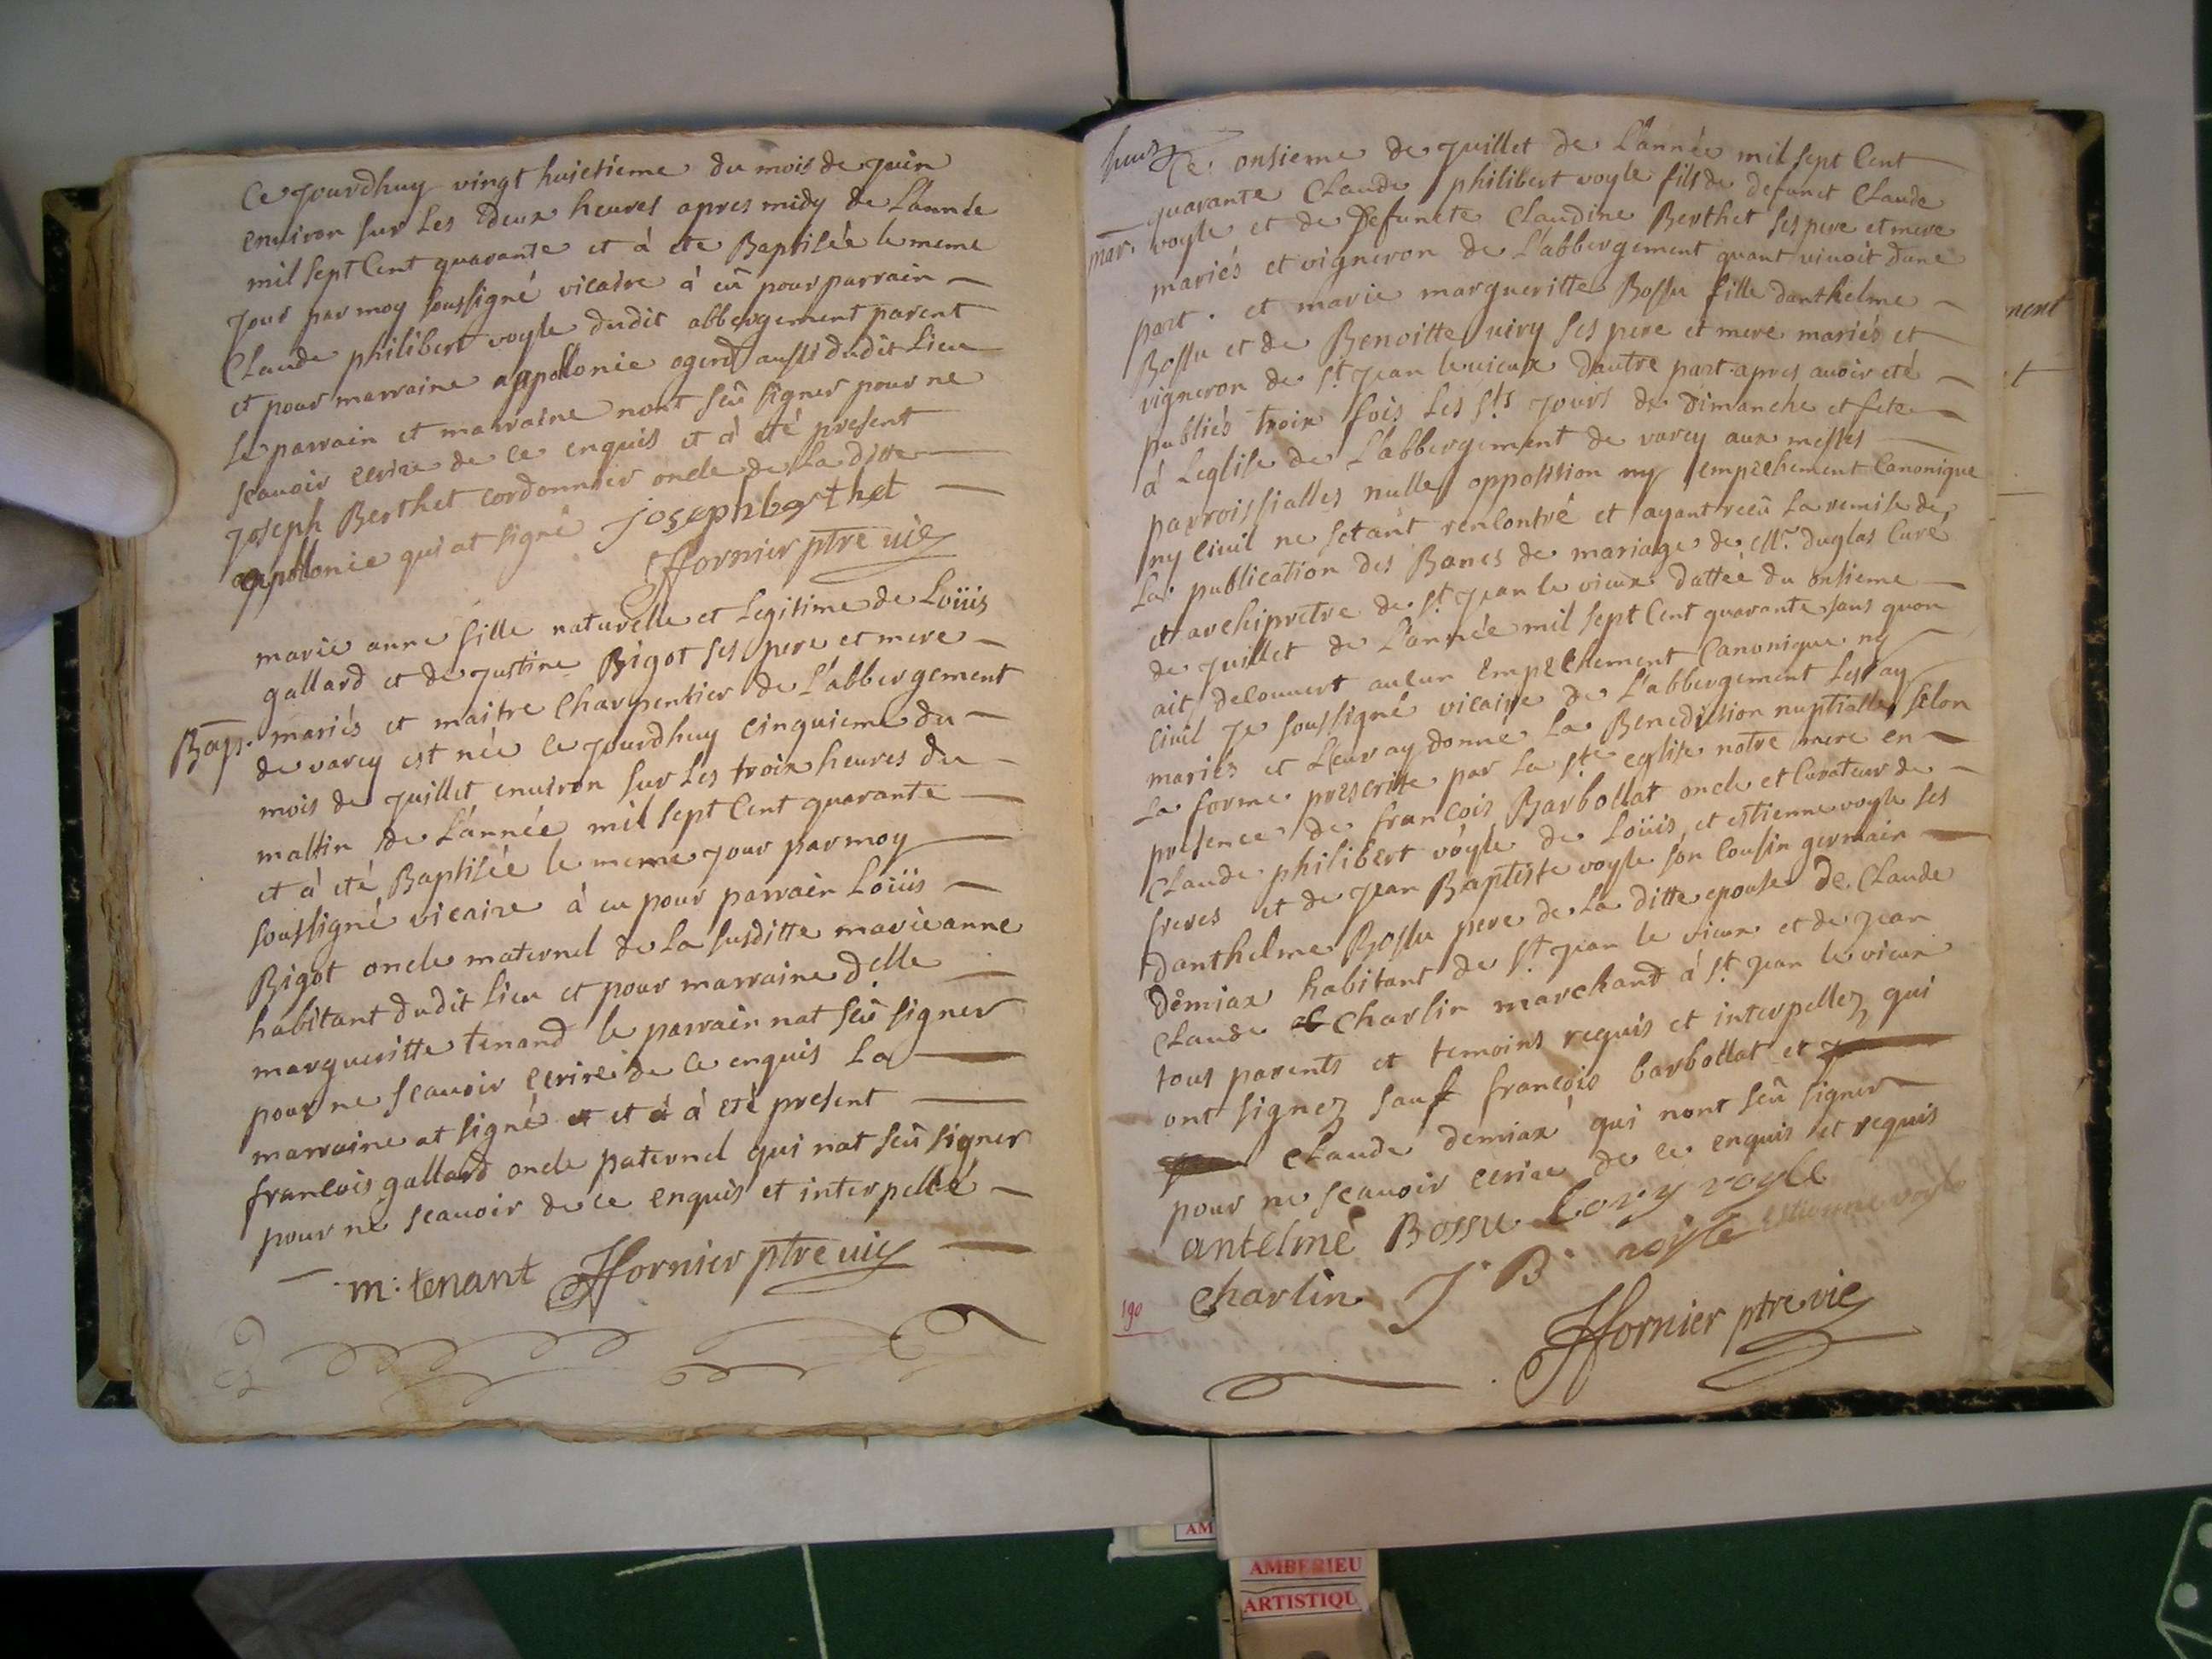 Ce jourdhuy vingt huictieme du mois de juin
environ sur les deux heures apres midy de L'année
mil sept Cent quarante et à ete Baptisée le meme
jour par moy soussigné vicaire à eû pour parrain
Claude philibert voyle dudit abbergement parent
et pour marraine appollonie ogerd aussi dudit Lieu
Le parrain et marraine nont seû signer pour ne
scavoir ecrire de ce enquis et à été present
joseph Berthet cordonnier oncle de La dite
appollonie qui at signé josephberthet
ffornier ptre vic
marie anne fille naturelle et Legitime de Loüis
gallard et de justine Bigot ses pere et mere
Bap. mariés et maitre Charpentier de L'abbergement
de varey est née ce jourdhuy cinquieme du
mois de juillet environ sur Les troix heures du
mattin de L'année mil sept Cent quarante
et à eté Baptisée le meme jour par moy
soussigné vicaire à eu pour parrain Loüis
Bigot oncle maternel de La susditte marie anne
habitant dudit Lieu et pour marraine delle
margueritte tenand le parrain nat seû signer
pour ne scavoir ecrire de ce enquis La
marraine at signé et et à à eté present
francois gallard oncle paternel qui nat seû signer
pour ne scavoir de ce enquis et interpellé
m: tenant ffornier ptre vic
Ce onsieme de juillet de L'année mil sept Cent
quarante Claude philibert voyle fils de defunct Claude
mar. voyle et de Defuncte Claudine Berthet ses pere et mere
mariés et vigneron de L'abbergement quant vivoit dune
part. et marie margueritte Bossu fille danthelme
Bossu et de Benoitte viry ses pere et mere mariés et
vigneron de st jean le vieux dautre part. apres avoir eté
publiés troix fois Les sts jours de dimanche et fete
à Leglise de L'abbergement de varey aux messes
parroissialles nulle opposition ny empechement Canonique
ny Civil ne setant rencontré et ayant reçû La remise de
La publication des Bancs de mariage de Mr. duglas Curé
et archipretre de st jean le vieux dattée du onsieme
de juillet de L'année mil sept Cent quarante sans quon
ait decouvert aucun Empechement Canonique ny
Civil Je soussigné vicaire de L'abbergement Les ay
mariés et Leur ay donné La Benediction nuptialle selon
La forme prescritte par La ste eglise notre mere en
presence de francois Barbollat oncle et Curateur de
Claude philibert voyle de Loüis et estienne voyle ses
freres et de jean Baptiste voyle son Cousin germain
danthelme Bossu pere de La ditte epouse de Claude
demiax habitant de st jean le vieux et de jean
Claude Charlin marchand à st jean le vieux
tous parents et temoins requis et interpellez qui
ont signez sauf francois barbollat et
Claude demiax qui nont seû signer
pour ne scavoir ecrire de ce enquis et requis
antelme Bossu Louy voyle
Charlin J B voyle estienne voyle
190
ffornier ptre vic
nent
t
AM
AMBERIEU
ARTISTIQU